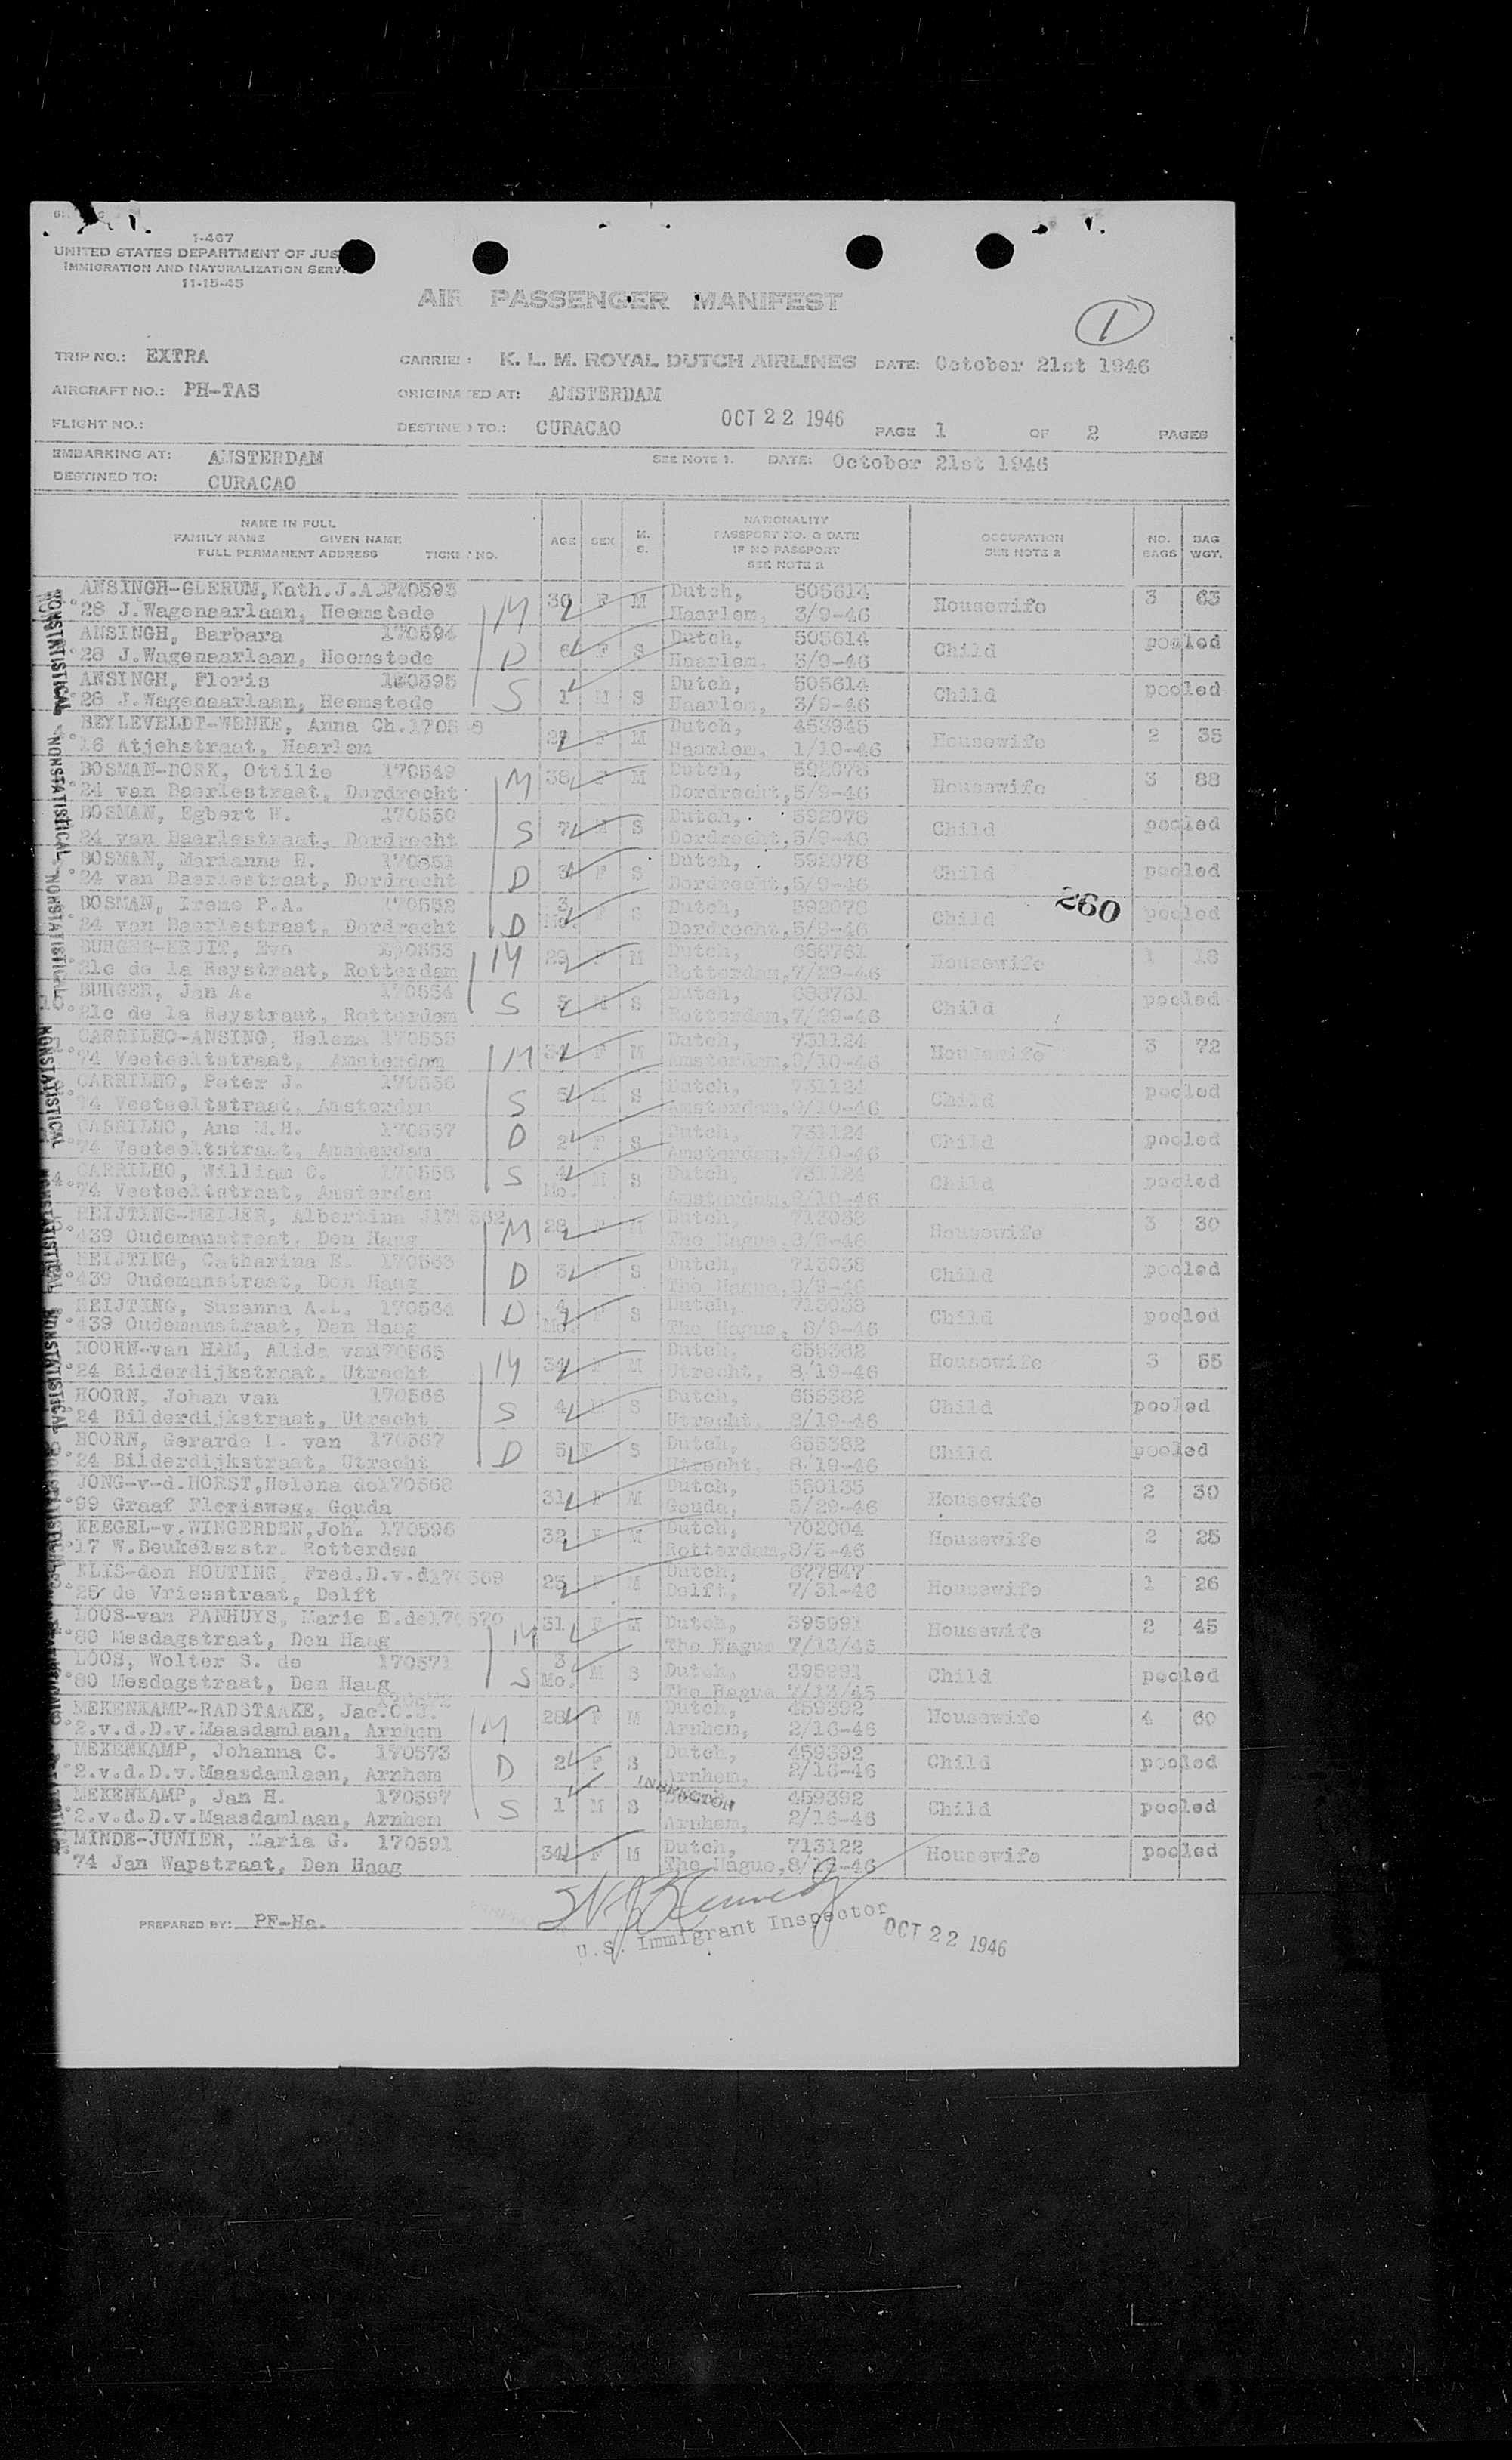 1-467
UNITED STATES DEPARTMENT OF JUS
IMMIGRATION AND NATURALIZATION SERV
11-15-45
AIR PASSENGER MANIFEST
1
TRIP NO.: EXTRA CARRIER: K. L. M. ROYAL DUTCH AIRLINES DATE: October 21st 1946
AIRCRAFT NO.: PH-TAS ORIGINATED AT: AMSTERDAM
FLIGHT NO.: DESTINED TO.: CURACAO OCT 22 1946 PAGE 1 OF 2 PAGES
EMBARKING AT: AMSTERDAM SEE NOTE 1. DATE: October 21st 1946
DESTINED TO: CURACAO
NAME IN FULL
FAMILY NAME GIVEN NAME
FULL PERMANENT ADDRESS TICKET NO. AGE SEX M. S. NATIONALITY PASSPORT NO. & DATE IF NO PASSPORT SEE NOTE 2 OCCUPATION SEE NOTE 2 NO. BAGS BAG WGT.
ANSINGH-GLERUM, Kath. J.A. 170593 M 30 F M Dutch, 505614 Housewife 3 63
28 J.Wagenaarlaan, Heemstede Haarlem, 3/9-46
ANSINGH, Barbara 170594 D 6 F S Dutch, 505614 Child pooled
28 J.Wagenaarlaan, Heemstede Haarlem, 3/9-46
ANSINGH, Floris 170595 S 1 M S Dutch, 505614 Child pooled
28 J.Wagenaarlaan, Heemstede Haarlem, 3/9-46
BEYLEVELDT-WENKE, Anna Ch. F M Dutch, 453945 Housewife 2 35
16 Atjehstraat, Haarlem Haarlem, 1/10-46
BOSMAN-DORK, Ottilie 170549 M 38 F M Dutch, 592078 Housewife 3 88
24 van Baerlestraat, Dordrecht Dordrecht, 5/9-46
BOSMAN, Egbert W. 170550 S 7 M S Dutch, 592078 Child pooled
24 van Baerlestraat, Dordrecht Dordrecht, 5/9-46
BOSMAN, Marianne H. 170551 D 3 F S Dutch, 592078 Child pooled
24 van Baerlestraat, Dordrecht Dordrecht, 5/9-46
260
BOSMAN, Irene P.A. 170552 D 3 Mo. F S Dutch, 592078 Child pooled
24 van Baerlestraat, Dordrecht Dordrecht, 5/9-46
BURGER-KRUIT, Eva 170553 M 29 F M Dutch, 686761 Housewife 1 18
21c de la Reystraat, Rotterdam Rotterdam, 7/29-46
BURGER, Jan A. 170554 S 5 M S Dutch, 686761 Child pooled
21c de la Reystraat, Rotterdam Rotterdam, 7/29-46
CARRILHO-ANSING, Helena 170555 M 34 F M Dutch, 731124 Housewife 3 72
74 Veeteeltstraat, Amsterdam Amsterdam, 9/10-46
CARRILHO, Peter J. 170556 S 5 M S Dutch, 731124 Child pooled
74 Veeteeltstraat, Amsterdam Amsterdam, 9/10-46
CARRILHO, Ans M.H. 170557 D 2 F S Dutch, 731124 Child pooled
74 Veeteeltstraat, Amsterdam Amsterdam, 9/10-46
CARRILHO, William C. 170558 S 4 Mo. M S Dutch, 731124 Child pooled
74 Veeteeltstraat, Amsterdam Amsterdam, 9/10-46
HEIJTING-MEIJER, Albertina J 170562 M 28 F M Dutch, 713038 Housewife 3 30
439 Oudemanstraat, Den Haag The Hague, 8/9-46
HEIJTING, Catharina E. 170563 D 3 F S Dutch, 713038 Child pooled
439 Oudemanstraat, Den Haag The Hague, 8/9-46
HEIJTING, Susanna A.L. 170564 D 4 Mo. F S Dutch, 713038 Child pooled
439 Oudemanstraat, Den Haag The Hague, 8/9-46
HOORN-van HAM, Alida van 170565 M 34 F M Dutch, 655382 Housewife 3 55
24 Bilderdijkstraat, Utrecht Utrecht, 8/19-46
HOORN, Johan van 170566 S 4 M S Dutch, 655382 Child pooled
24 Bilderdijkstraat, Utrecht Utrecht 8/19-46
HOORN, Gerarda L. van 170567 D 5 F S Dutch, 655382 Child pooled
24 Bilderdijkstraat, Utrecht Utrecht. 8/19-46
JONG-v-d.HORST, Helena de 170568 31 F M Dutch, 550135 Housewife 2 30
99 Graaf Florisweg, Gouda Gouda, 5/29-46
KEEGEL-v.WINGERDEN, Joh. 170596 32 F M Dutch, 702004 Housewife 2 25
17 W.Beukelszstr. Rotterdam Rotterdam, 8/5-46
ELIS-den HOUTING, Fred.D.v.d 170569 25 F M Dutch, 677847 Housewife 1 26
25 de Vriesstraat, Delft Delft, 7/31-46
LOOS-van PANHUYS, Marie E.de 170570 M 31 F M Dutch, 395991 Housewife 2 45
80 Mesdagstraat, Den Haag The Hague 7/13/45
LOOS, Wolter S. de 170571 S 3 Mo. M S Dutch, 395991 Child pooled
80 Mesdagstraat, Den Haag The Hague 7/13/45
MEKENKAMP-RADSTAAKE, Jac.C.J. M 28 F M Dutch, 459392 Housewife 4 60
2.v.d.D.v.Maasdamlaan, Arnhem Arnhem, 2/16-46
MEKENKAMP, Johanna C. 170573 D 2 F S Dutch, 459392 Child pooled
2.v.d.D.v.Maasdamlaan, Arnhem Arnhem, 2/16-46
INSPECTOR
MEKENKAMP, Jan H. 170597 S 1 M S Dutch, 459392 Child pooled
2.v.d.D.v.Maasdamlaan, Arnhem Arnhem, 2/16-46
MINDE-JUNIER, Maria G. 170591 34 F M Dutch, 713122 Housewife pooled
74 Jan Wapstraat, Den Haag The Hague,
NONSTATISTICAL NONSTATISTICAL NONSTATISTICAL NONSTATISTICAL NONSTATISTICAL NONSTATISTICAL
PREPARED BY: PF-Ha.
U.S. Immigrant Inspector
OCT 22 1946